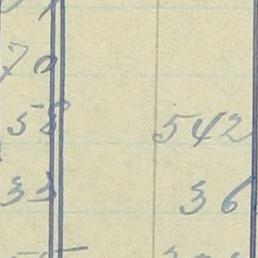 70
58 542
33 36